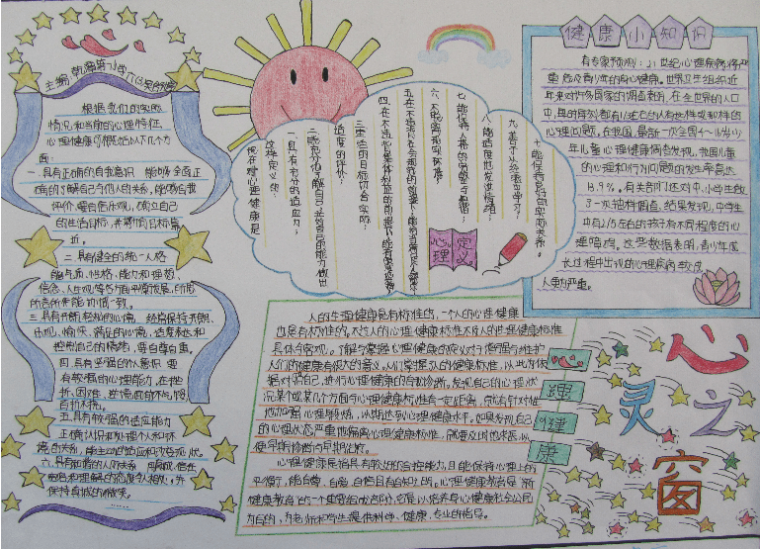 主编:
根据我们的实际
情况和当前的心理特征,
心理健康的概括以下几个方
面:
一.具有正确的自我意识 能够全面正
确的了解自己与他人的关系,
评价,
的生活目标,
二.具有健全的统一人格
能气质、性格、能力和理想、
信念、人生观等各方面平衡发展,
三.具有开朗、轻松的心境 经常保持开朗、
乐观、愉快、满足的心境,适度表达和
控制自己的情绪,
四.具有坚强的人意识
有较强的心理能力,在挫
折、困难、
百折不挠。
五.具有较强的适应能力
正确认识
系的关系,能主动的适应和改变现状。
六.具有和谐的人际关系
和理解的态度与人相处,并
保持真诚的微笑。
……
现在对心理健康是
这样定义的:
一.具有充分的适应力;
二.能充分地了解自己,并对自己的能力做出
适度的评价;
三.生活的目标切合实际;
四.在不违背集体利益的前提下,
五.在不违背社会规范的前提下,能恰当满足个人要求
六.不脱离现实环境;
七.能保持人格的完整与和谐;
八.能适度地发泄情绪;
九.善于从经验中学习;
十.能保持良好的人际关系。
心理
定义
健康小知识
有专家预测:21世纪心理疾病将严
重危及青少年的身心健康。世界卫生组织近
年来对许多国家的调查表明,在全世界的人口
中,每时每刻都有1/3左右的人有这样或那样的
心理问题。在我国,最新一次全国4~16岁少
年儿童心理健康调查发现,我国儿童
的心理和行为问题的发生率高达
13.9%,有关部门还对中小学生做
了一次抽样调查,结果发现,中学生
中有1/5左右的孩子有不同程度的心
理障碍,这些数据表明,青少年成
长过程中出现的心理疾病
人的严重。
人的生理健康是有标准的,一个人的心理健康
也是有标准的。不过人的心理健康标准不及人的生理健康标准
具体与客观。了解与掌握心理健康的定义对于增强与维护
人们的健康有很大的意义。人们掌握了人的健康标准,以此为依
据对照自己,进行心理健康的自我诊断,发现自己的心理状
况某个或某几个方面与心理健康标准有一定距离,就有针对性
地加强心理锻炼,以期达到心理健康水平。如果发现自己
的心理状态严重地偏离心理健康标准,就要及时地求医,以
便早期诊断与早期治疗。
心理健康是指具有较好的自控能力,且能保持心理上的
平衡, 能自尊、自爱、自信且有自知之明。心理健康教育是"新
健康教育"的一个重要组成部分,它是以培养身心健康社会公民
为目的,为老师和学生提供科学、健康、专业的指导。
心
理
健
康
心
灵
之
窗